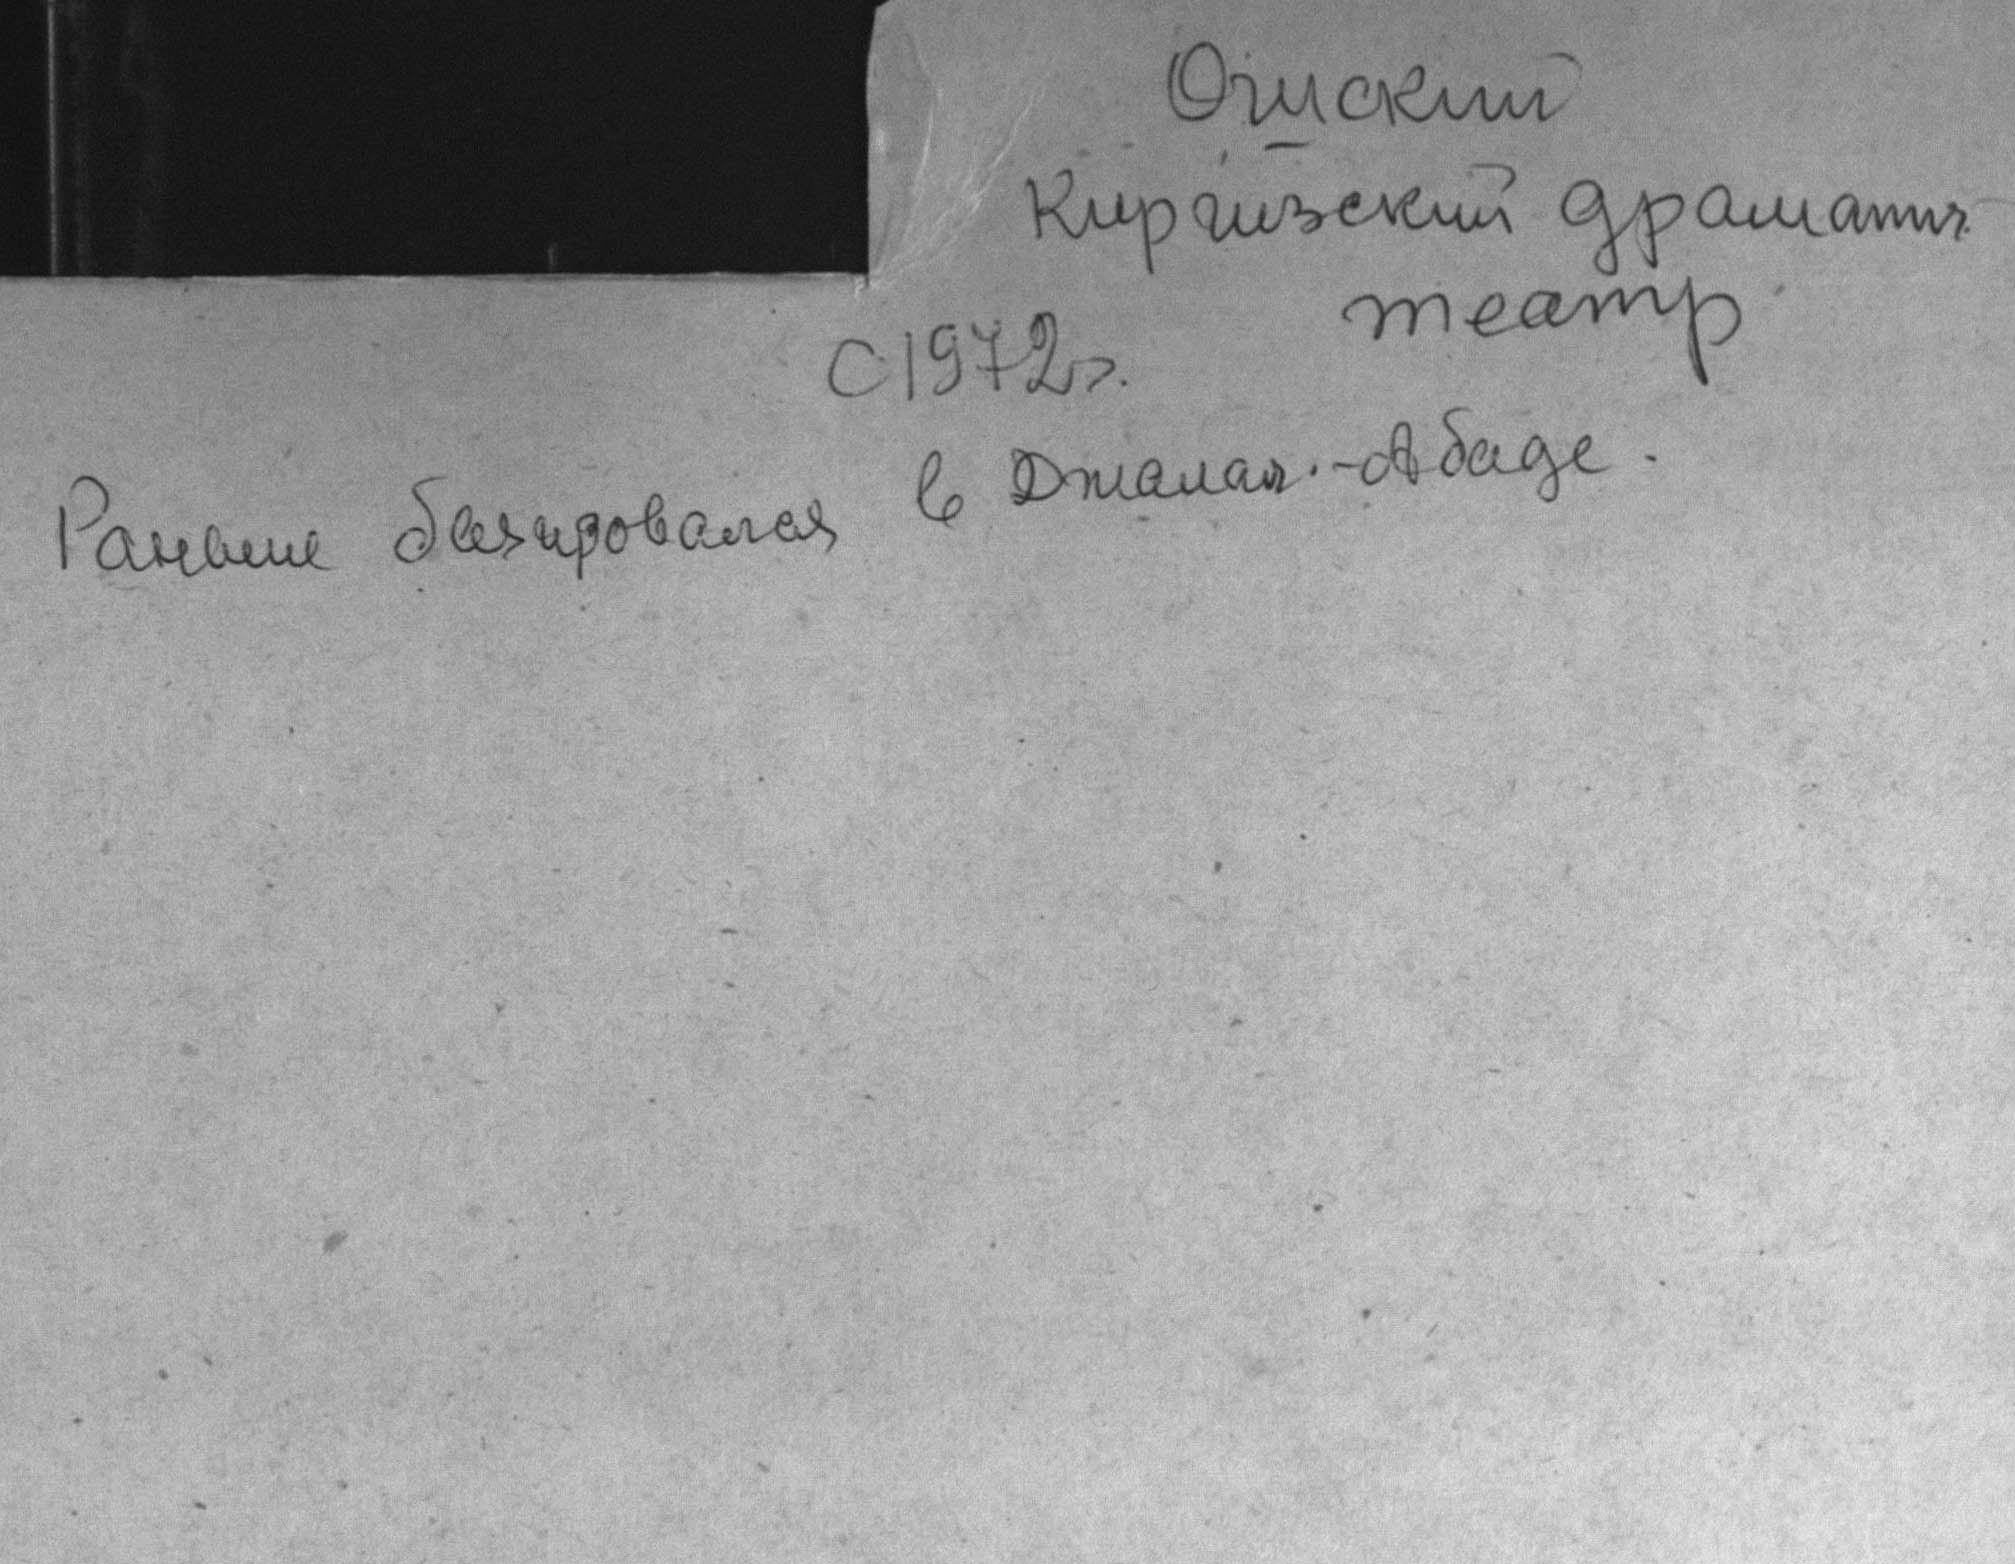 Ошский
Киргизский драматич.
театр
С 1972 г.
Раньше базировался в Джалал.-Абаде.